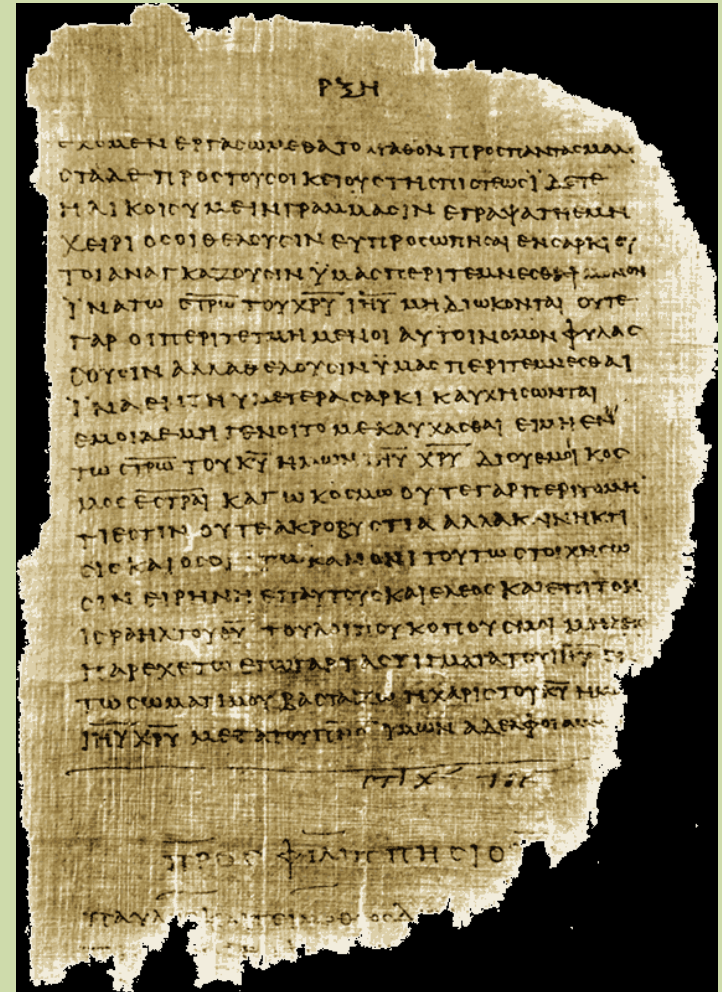 ΡΞΗ
ΕΧΟΜΕΝ ΕΡΓΑCΩΜΕΘΑ ΤΟ ΑΓΑΘΟΝ ΠΡΟC ΠΑΝΤΑC ΜΑΛΙ
CΤΑ ΔΕ ΠΡΟC ΤΟΥC ΟΙΚΕΙΟΥC ΤΗC ΠΙCΤΕΩC ΪΔΕΤΕ
ΗΛΙΚΟΙC ΥΜΕΙΝ ΓΡΑΜΜΑCΙΝ ΕΓΡΑΨΑ ΤΗ ΕΜΗ
ΧΕΙΡΙ ΟCΟΙ ΘΕΛΟΥCΙΝ ΕΥΠΡΟCΩΠΗCΑΙ ΕΝ CΑΡΚΙ ΟΥ
ΤΟΙ ΑΝΑΓΚΑΖΟΥCΙΝ ΫΜΑC ΠΕΡΙΤΕΜΝΕCΘΑΙ ΜΟΝΟΝ
ΪΝΑ ΤΩ C̅Τ̅Ρ̅Ω̅ ΤΟΥ Χ̅Ρ̅Υ̅ Ι̅Η̅Υ̅ ΜΗ ΔΙΩΚΟΝΤΑΙ ΟΥΤΕ
ΓΑΡ ΟΙ ΠΕΡΙΤΕΤΜΗΜΕΝΟΙ ΑΥΤΟΙ ΝΟΜΟΝ ΦΥΛΑC
CΟΥCΙΝ ΑΛΛΑ ΘΕΛΟΥCΙΝ ΫΜΑC ΠΕΡΙΤΕΜΝΕCΘΑΙ
ΪΝΑ ΕΝ ΤΗ ΥΜΕΤΕΡΑ CΑΡΚΙ ΚΑΥΧΗCΩΝΤΑΙ
ΕΜΟΙ ΔΕ ΜΗ ΓΕΝΟΙΤΟ ΜΕ ΚΑΥΧΑCΘΑΙ ΕΙ ΜΗ ΕΝ
ΤΩ C̅Τ̅Ρ̅Ω̅ ΤΟΥ Κ̅Υ̅ ΗΜΩΝ Ι̅Η̅Υ̅ Χ̅Ρ̅Υ̅ ΔΙ ΟΥ ΕΜΟΙ ΚΟC
ΜΟC Ε̅C̅Τ̅Ρ̅Α̅Ι̅ ΚΑΓΩ ΚΟCΜΩ ΟΥΤΕ ΓΑΡ ΠΕΡΙΤΟΜΗ
ΤΙ ΕCΤΙΝ ΟΥΤΕ ΑΚΡΟΒΥCΤΙΑ ΑΛΛΑ ΚΑΙΝΗ ΚΤΙ
CΙC ΚΑΙ ΟCΟΙ ΤΩ ΚΑΝΟΝΙ ΤΟΥΤΩ CΤΟΙΧΗCΩ
CΙΝ ΕΙΡΗΝΗ ΕΠ ΑΥΤΟΥC ΚΑΙ ΕΛΕΟC ΚΑΙ ΕΠΙ ΤΟΝ
ΙCΡΑΗΛ ΤΟΥ Θ̅Υ̅ ΤΟΥ ΛΟΙΠΟΥ ΚΟΠΟΥC ΜΟΙ ΜΗΔΕΙC
ΠΑΡΕΧΕΤΩ ΕΓΩ ΓΑΡ ΤΑ CΤΙΓΜΑΤΑ ΤΟΥ Ι̅Η̅Υ̅ ΕΝ
ΤΩ CΩΜΑΤΙ ΜΟΥ ΒΑCΤΑΖΩ Η ΧΑΡΙC ΤΟΥ Κ̅Υ̅ ΗΜΩ
Ι̅Η̅Υ̅ Χ̅Ρ̅Υ̅ ΜΕΤΑ ΤΟΥ Π̅Ν̅C̅ ΥΜΩΝ ΑΔΕΛΦΟΙ ΑΜΗΝ
CΤΙΧ
ΠΡΟC ΦΙΛΙΠΠΗCΙΟΥ
ΠΑΥΛΟC ΚΑΙ ΤΕΙΜΟΘΕΟC